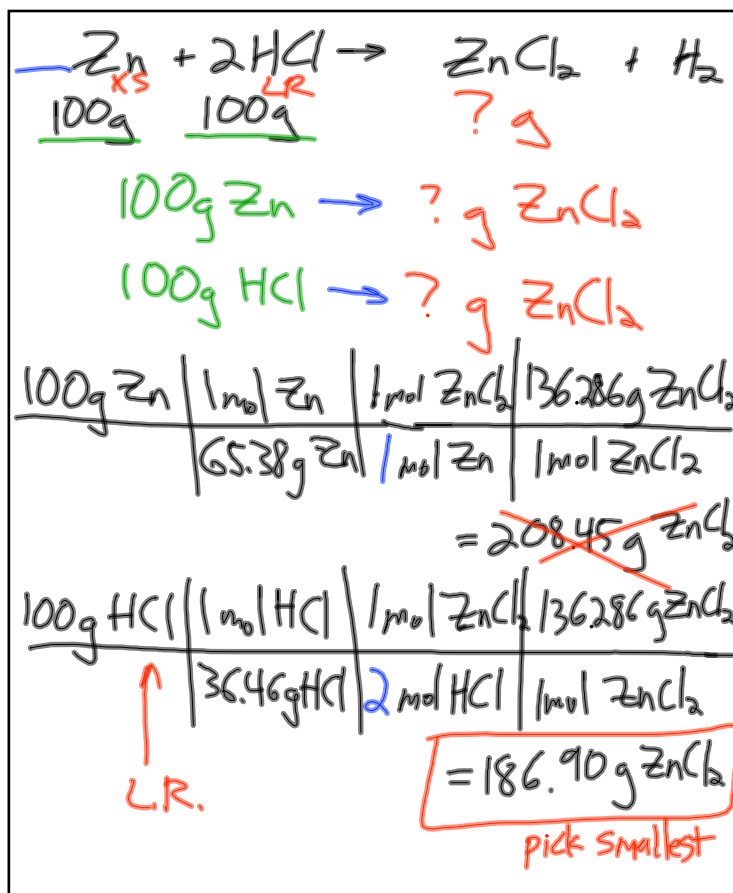 Zn + 2HCl → ZnCl₂ + H₂
XS LR
100g 100g ? g
100g Zn → ? g ZnCl₂
100g HCl → ? g ZnCl₂
100g Zn | 1mol Zn | 1mol ZnCl₂ | 136.286g ZnCl₂
65.38g Zn | 1mol Zn | 1mol ZnCl₂
= 208.45 g ZnCl₂
100g HCl | 1mol HCl | 1mol ZnCl₂ | 136.286g ZnCl₂
36.46g HCl | 2 mol HCl | 1mol ZnCl₂
= 186.90 g ZnCl₂
L.R.
pick smallest